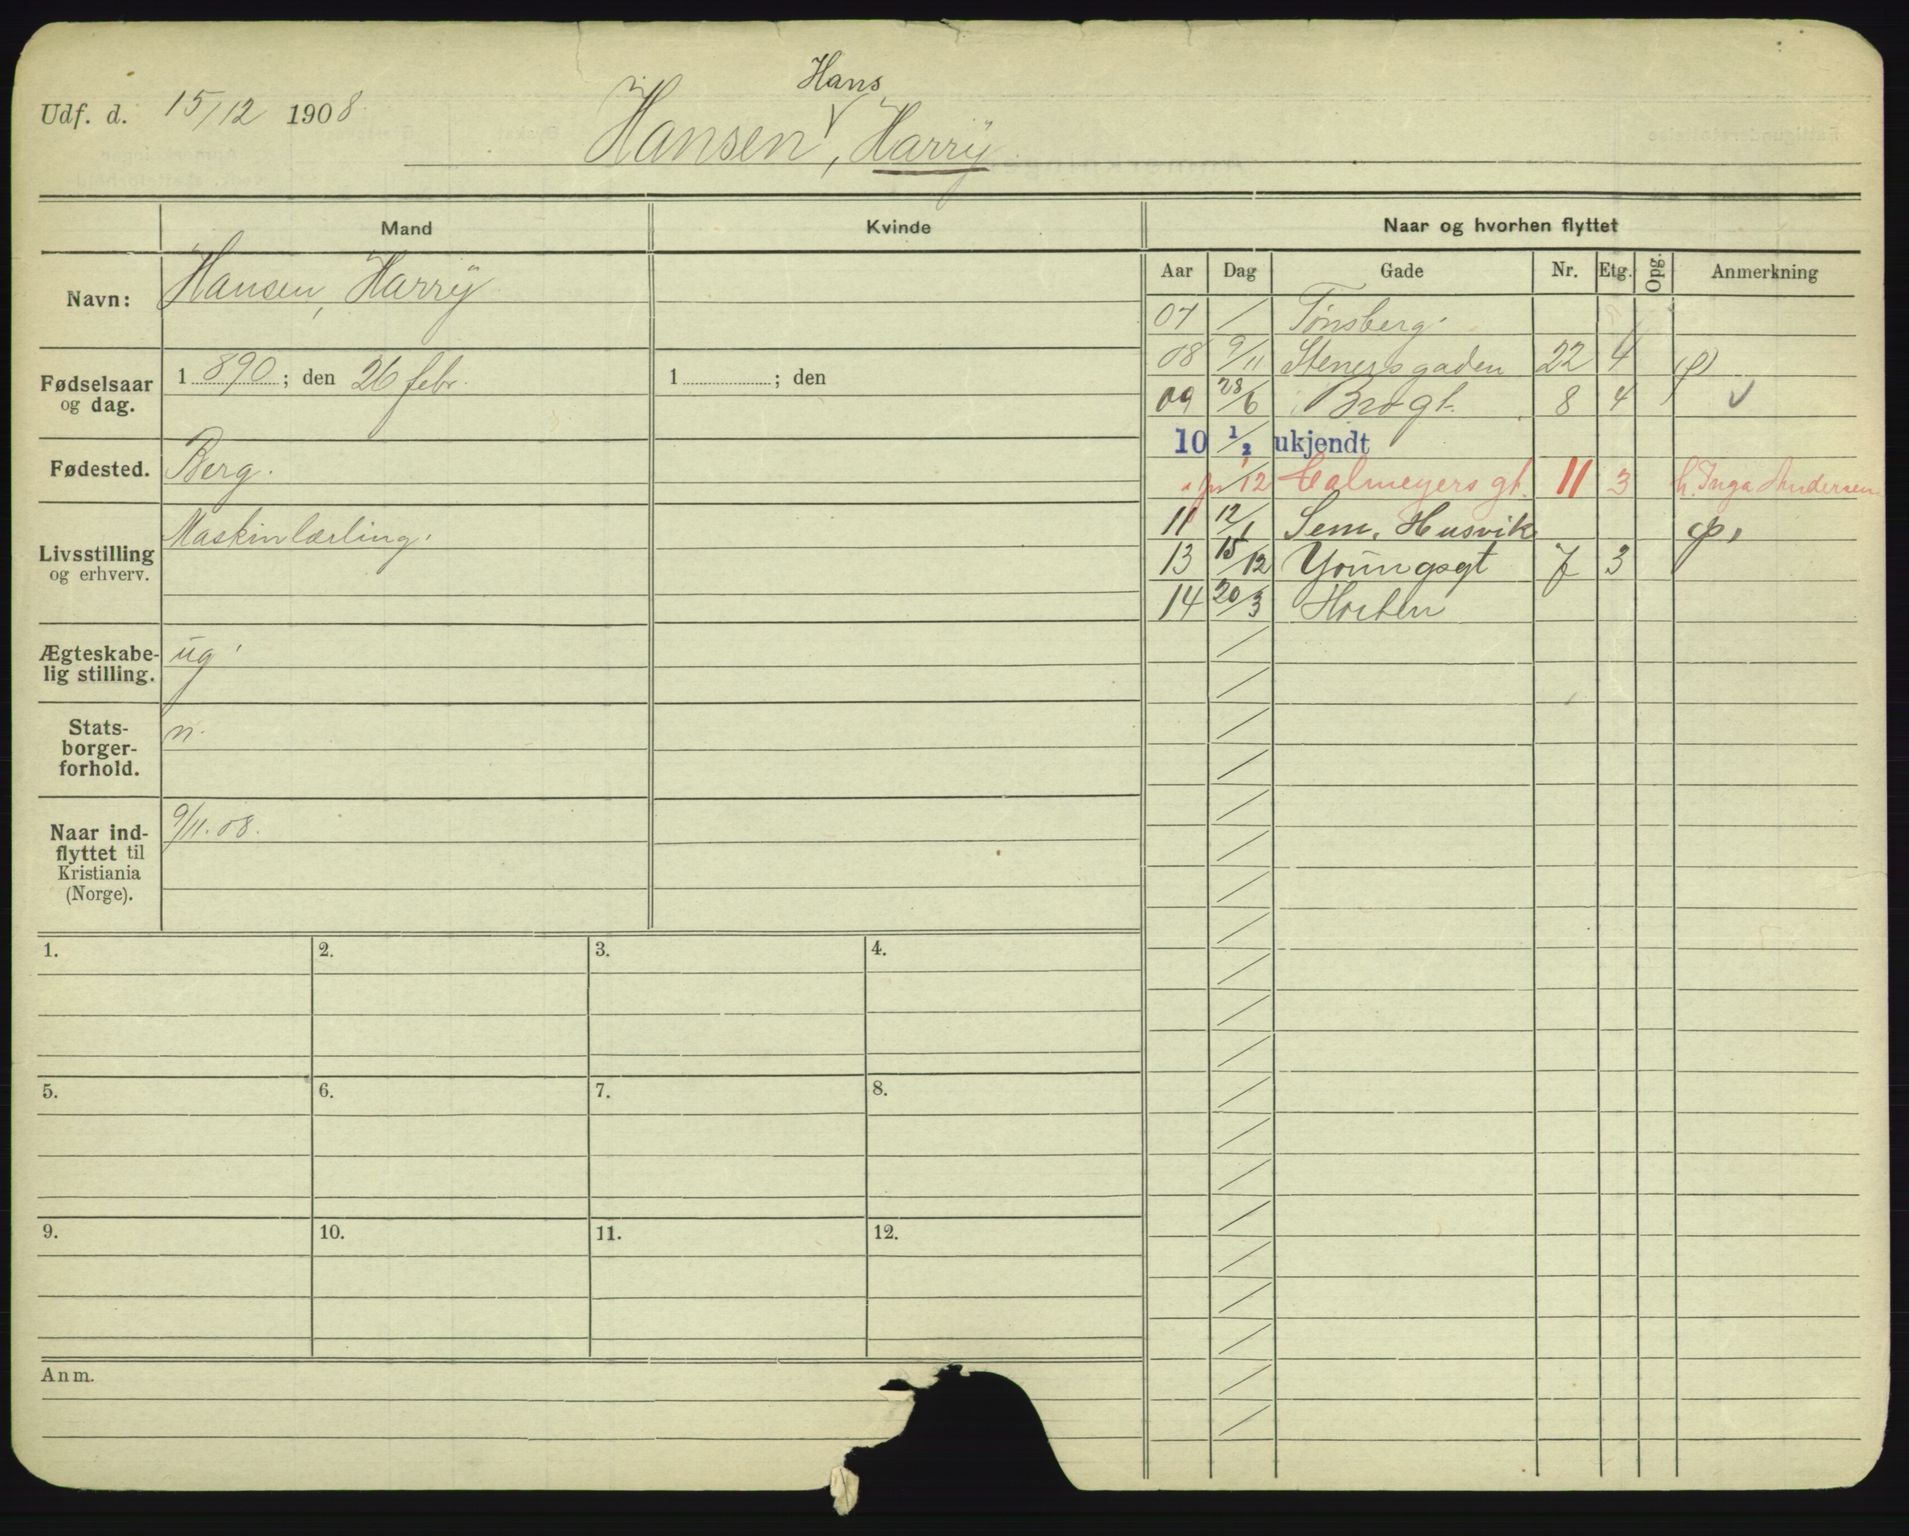 Udf. d. 15/12 1908
Hans
Hansen, Harry
Mand
Kvinde
Naar og hvorhen flyttet
Navn: Hansen, Harry
Fødselsaar og dag. 1 890; den 26 febr. 1 ; den
Fødested. Berg.
Livsstilling og erhverv. Maskinlærling.
Ægteskabelig stilling. ug
Statsborgerforhold. n.
Naar indflyttet til Kristiania (Norge). 9/11.08.
Aar Dag Gade Nr. Etg. Opg. Anmerkning
07 / Tønsberg.
08 9/11 Stenersgaden 22 4
09 28/6 Brogt. 8 4 ✓
10 1/2 ukjendt
/12 Calmeyers gt. 11 3 h. Inga Andersen
11 12/1 Sem, Husvik
13 15/12 Youngsgt 7 3
14 20/3 Horten
1. 2. 3. 4.
5. 6. 7. 8.
9. 10. 11. 12.
Anm.